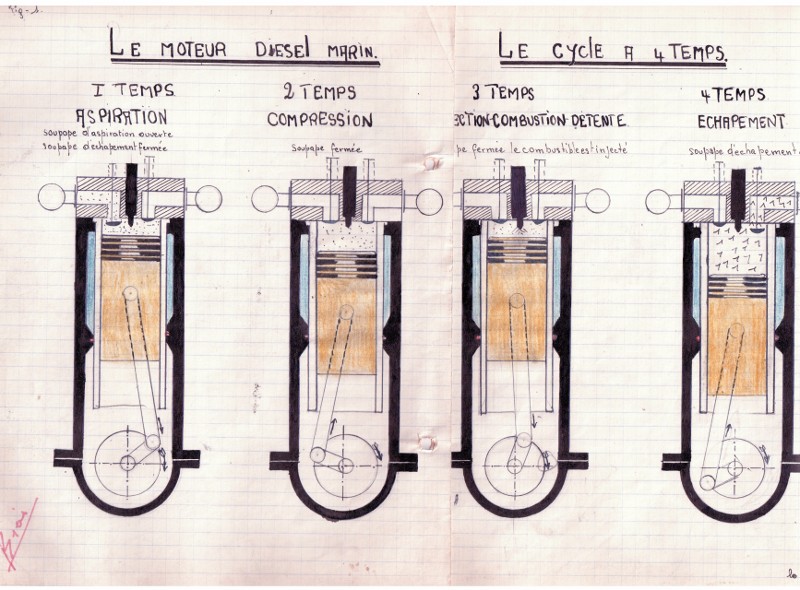 Fig-1.
LE MOTEUR DIESEL MARIN.
LE CYCLE A 4 TEMPS.
I TEMPS
ASPIRATION
soupope d'aspiration ouverte
soupape d'échapement fermée
2 TEMPS
COMPRESSION
soupape fermée
3 TEMPS
ECTION-COMBUSTION-DETENTE
pe fermée le combustible est injecté
4 TEMPS
ECHAPEMENT
soupape d'échapement